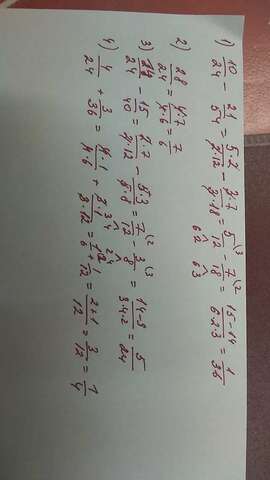 1) 10/24 - 21/54 = 5·2/2·12 - 3·7/3·18 = 5/12 - 7/18 = 15-14/6·2·3 = 1/36
6 2 6 3
2) 28/24 = 4·7/4·6 = 7/6
3) 14/24 - 15/40 = 2·7/2·12 - 5·3/5·8 = 7/12 - 3/8 = 14-9/3·4·2 = 5/24
3 4 2 4
4) 4/24 + 3/36 = 4·1/4·6 + 3·1/3·12 = 1/6 + 1/12 = 2+1/12 = 3/12 = 1/4